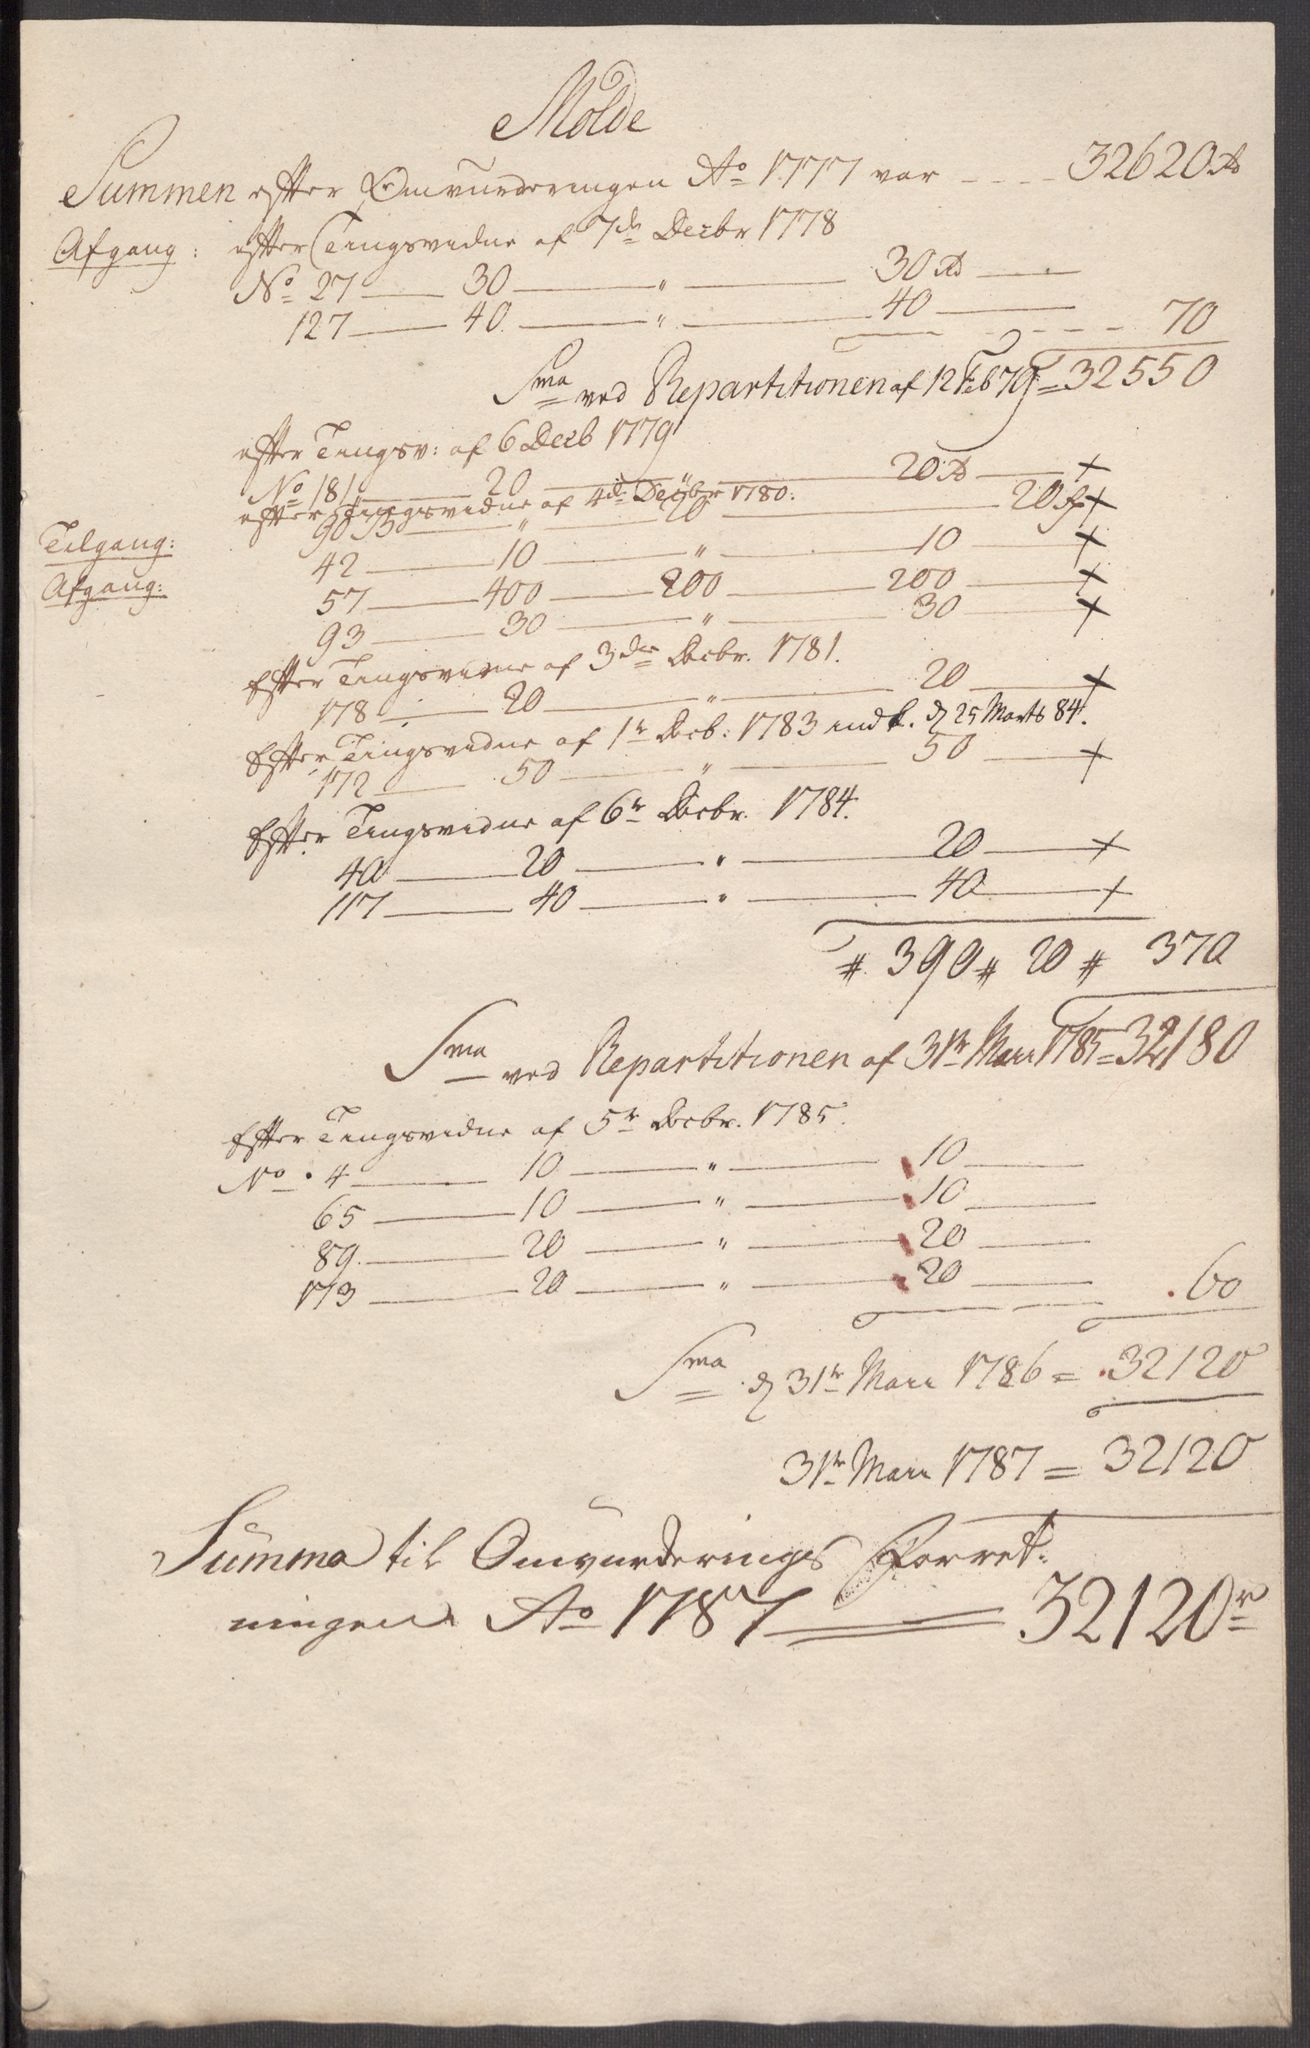 Molde
Summen efter Omvurderingen Ao 1777 var - - - - 32620 rd
Afgang: efter Tingsvidne af 7de Decbr 1778
No 27 — 30 — " — 30 rd —
127 — 40 — " — 40 — - - - - 70
Sma ved Repartitionen af 12 Feb 79 = 32550
efter Tingsv: af 6 Decb 1779
No 181 — 20 — " — 20 rd — +
efter Tingsvidne af 4de Decbr 1780:
Tilgang: 90 B — " — 20 — 20 rd +
Afgang: 42 — 10 — " — 10 — +
57 — 400 — 200 — 200 — +
93 — 30 — " — 30 — +
Efter Tingsvidne af 3die Decbr. 1781.
178 — 20 — " — 20 — +
Efter Tingsvidne af 1te Decb: 1783 indk. d 25 Marts 84.
172 — 50 — " — 50 — +
Efter Tingsvidne af 6te Decbr. 1784.
40 — 20 — " — 20 — +
117 — 40 — " — 40 — +
# 390 # 20 # 370
Sma ved Repartitionen af 31te Marr 1785 = 32180
Efter Tingsvidne af 5te Decbr. 1785.
No 4 — 10 — " — 10 —
65 — 10 — " — 10 —
89 — 20 — " — 20 —
173 — 20 — " — 20 — 60
Sma d 31te Marr 1786 = 32120
31te Marr 1787 = 32120
Summa til Omvurderings Forret-
ningen Ao 1787 = 32120 r